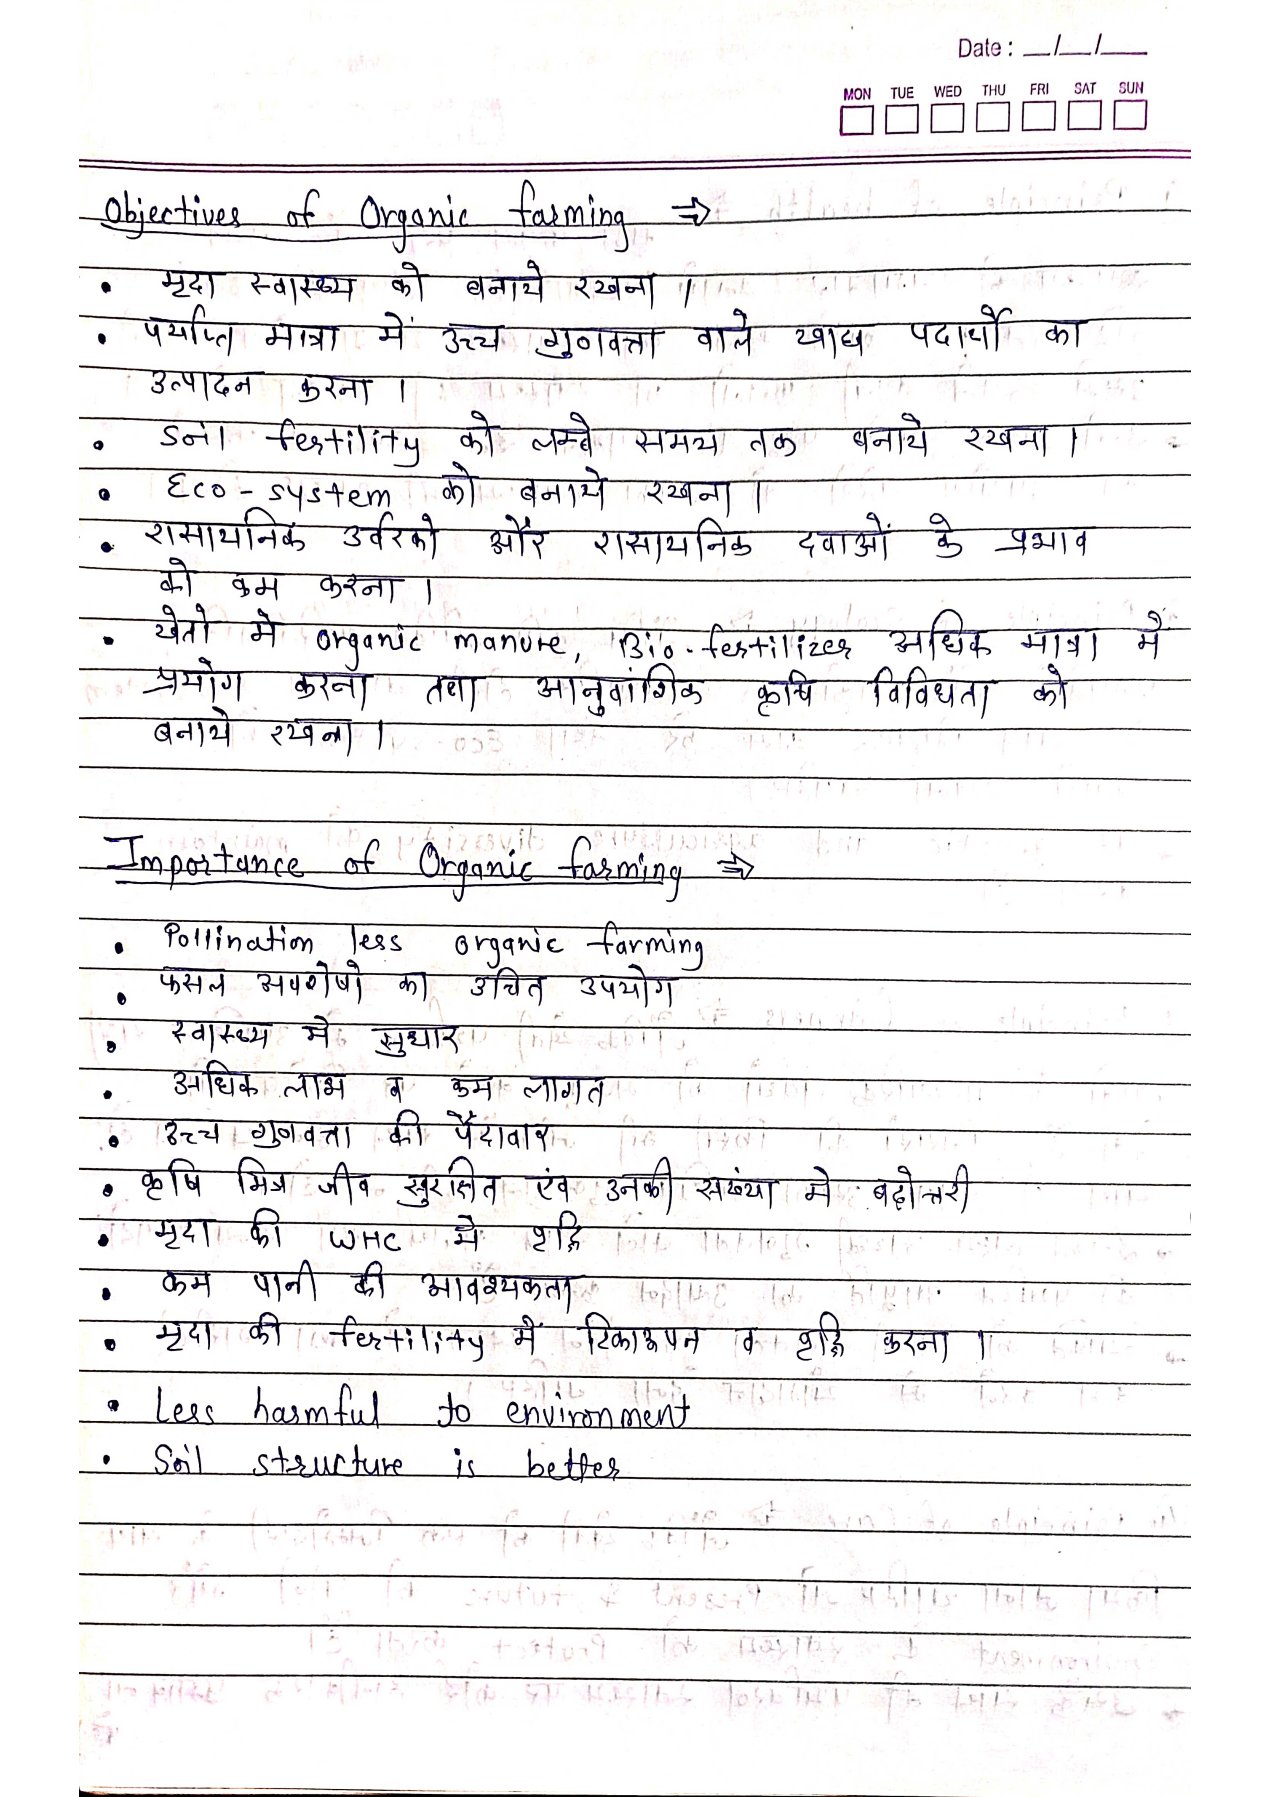 Date : __/__/__
MON TUE WED THU FRI SAT SUN
Objectives of Organic farming ⇒
• मृदा स्वास्थ्य को बनाये रखना ।
• पर्याप्त मात्रा में उच्च गुणवत्ता वाले खाद्य पदार्थो का
उत्पादन करना ।
• Soil fertility को लम्बे समय तक बनाये रखना ।
• Eco-system को बनाये रखना ।
• रासायनिक उर्वरको और रासायनिक दवाओं के प्रभाव
को कम करना ।
• खेतो मे organic manure, Bio-fertilizer अधिक मात्रा में
प्रयोग करना तथा आनुवांशिक कृषि विविधता को
बनाये रखना ।
Importance of Organic farming ⇒
• Pollination less organic farming
• फसल अवशेषो का उचित उपयोग
• स्वास्थ्य मे सुधार
• अधिक लाभ व कम लागत
• उच्च गुणवत्ता की पैदावार
• कृषि मित्र जीव सुरक्षित एंव उनकी सख्ंया मे बढ़ोत्तरी
• मृदा की WHC मे वृद्धि
• कम पानी की आवश्यकता
• मृदा की fertility में टिकाऊपन व वृद्धि करना ।
• Less harmful to environment
• Soil structure is better